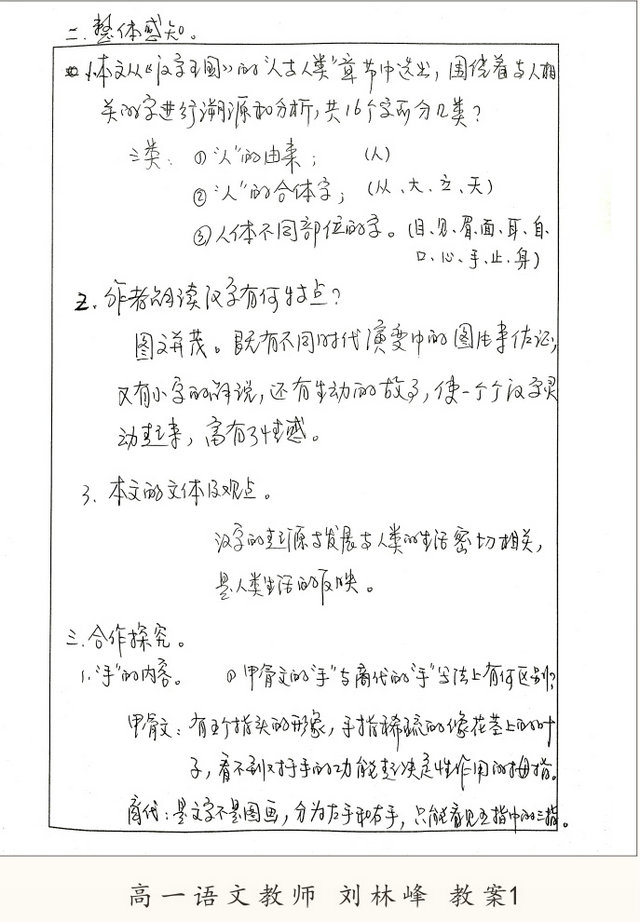 二.整体感知。
1.本文从《汉字王国》的"人与人类"章节中选出,围绕着与人相
关的字进行溯源和分析,共16个字可分几类?
三类: ①"人"的由来; (人)
②"人"的合体字; (从、大、立、天)
③人体不同部位的字。(目、见、眉、面、耳、自、
口、心、手、止、身)
2.作者解读汉字有何特点?
图文并茂。既有不同时代演变中的图片来佐证,
又有小字的解说,还有生动的故事,使一个个汉字灵
动起来,富有了情感。
3.本文的文体及观点。
汉字的起源与发展与人类的生活密切相关,
是人类生活的反映。
三.合作探究。
1."手"的内容。 ①甲骨文的"手"与商代的"手"写法上有何区别?
甲骨文:有五个指头的形象,手指稀疏的像花茎上的叶
子,看不到对于手的功能起决定性作用的拇指。
商代:是文字不是图画,分为左手和右手,只能看见五指中的三指。
高一语文教师 刘林峰 教案1